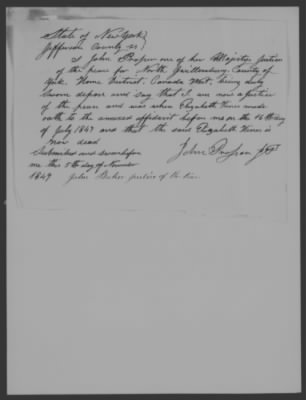 State of New York
Jefferson County ss
I John Prosser one of her Majestys Justices
of the peace for North Gwillimbury, County of
York. Home District. Canada West, being duly
Sworn depose and say that I am now a Justice
of the peace and was when Elizabeth made
oath to the annexed affidavit before me on the 16th day
of July 1847 and that the said Elizabeth is
now dead
Subscribed and sworn before
me this 5th day of November
1849
John Prosser
John justice of the